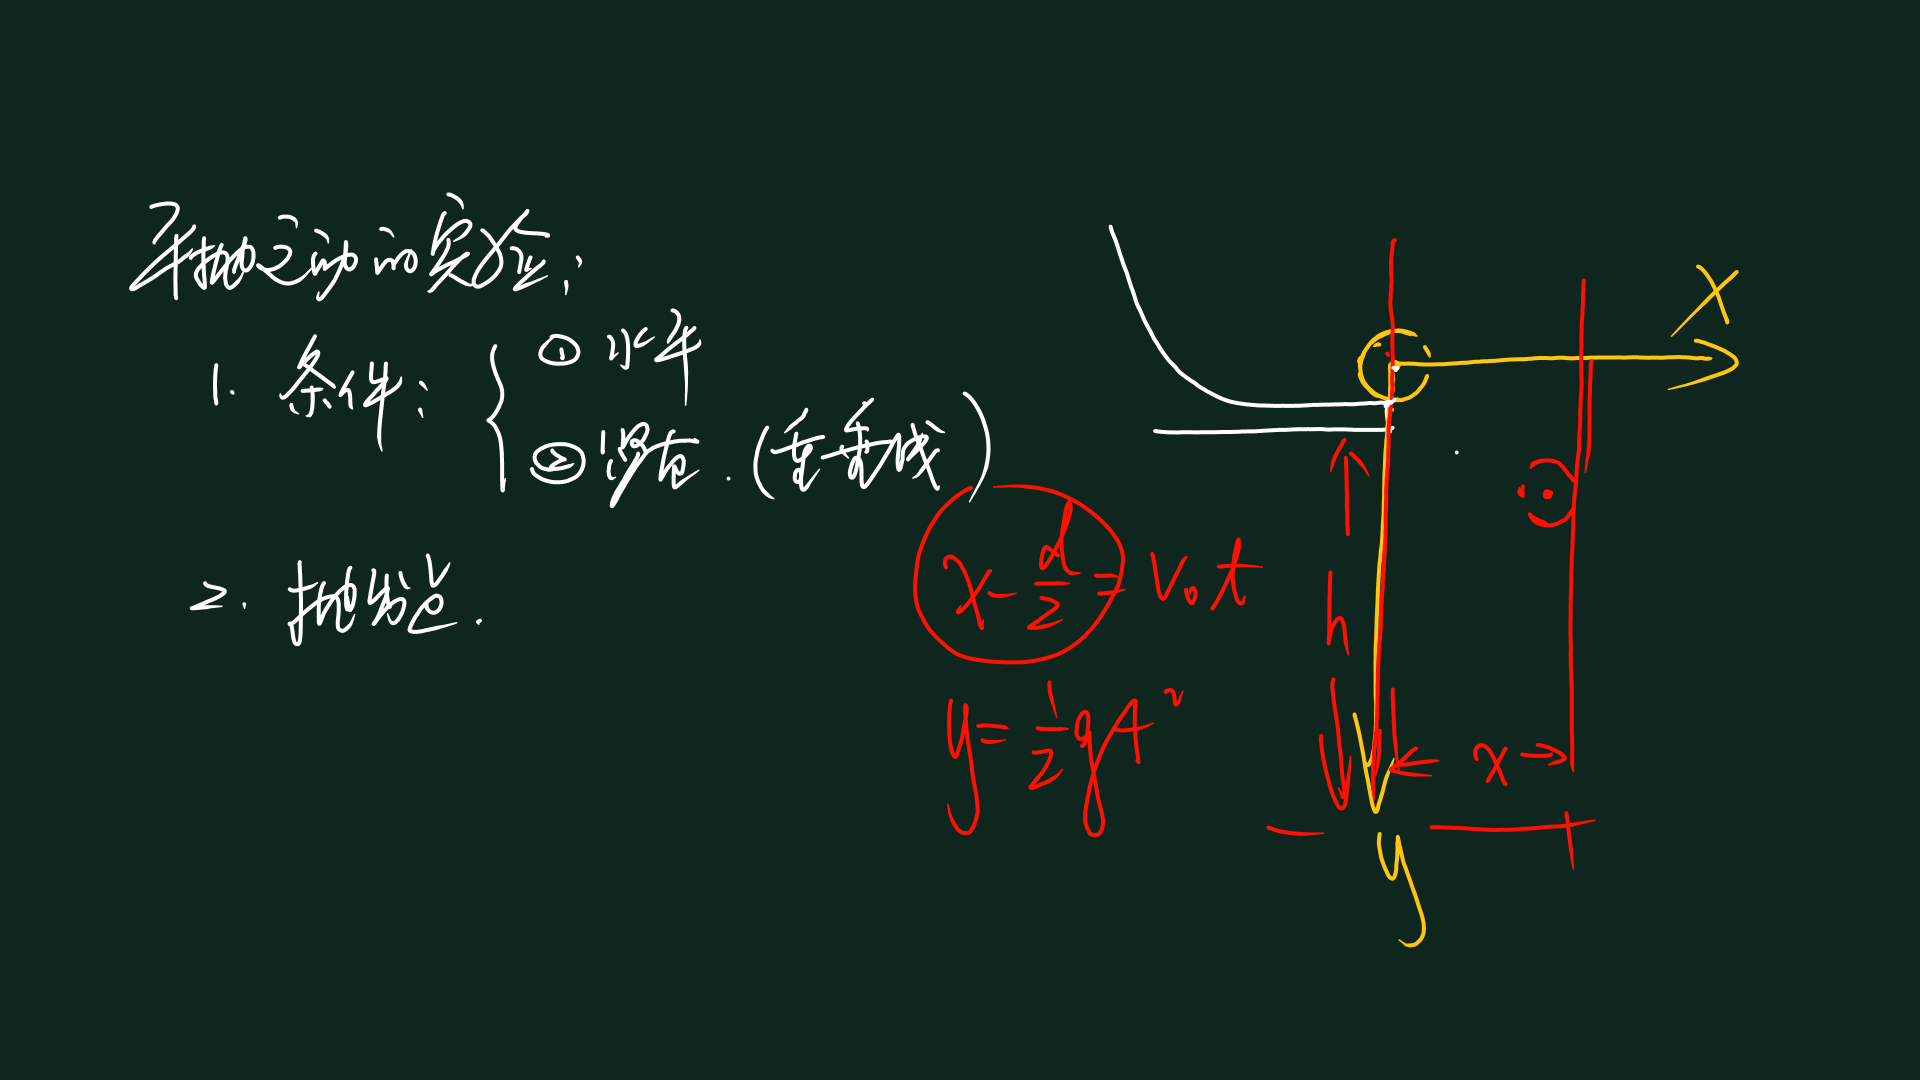 平抛运动的实验：
1. 条件：
① 水平
② 竖直.(重垂线)
2. 抛出点.
x - d/2 = v₀t
y = 1/2 gt²
h
x
X
y